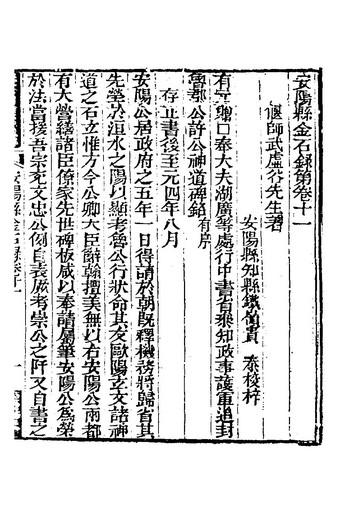 安陽縣金石錄第卷十一
偃師武虛谷先生著
安陽縣知縣鐵嶺貴 泰校梓
有元贈口奉大夫湖廣等處行中書省參知政事護軍追封
魯郡公許公神道碑銘有序
存正書後至元四年八月
安陽公居政府之五年一日得請於朝既釋機務將歸省其
先塋於洹水之陽以顯考魯公行狀命其友歐陽玄文諸神
道之石立惟方今公卿大臣辭翰擅美無以右安陽公兩都
有大營繕諸臣僚家先世碑板咸以奉請屬筆安陽公爲榮
於法當援吾宗兖文忠公例自表厥考崇公之阡又自書之